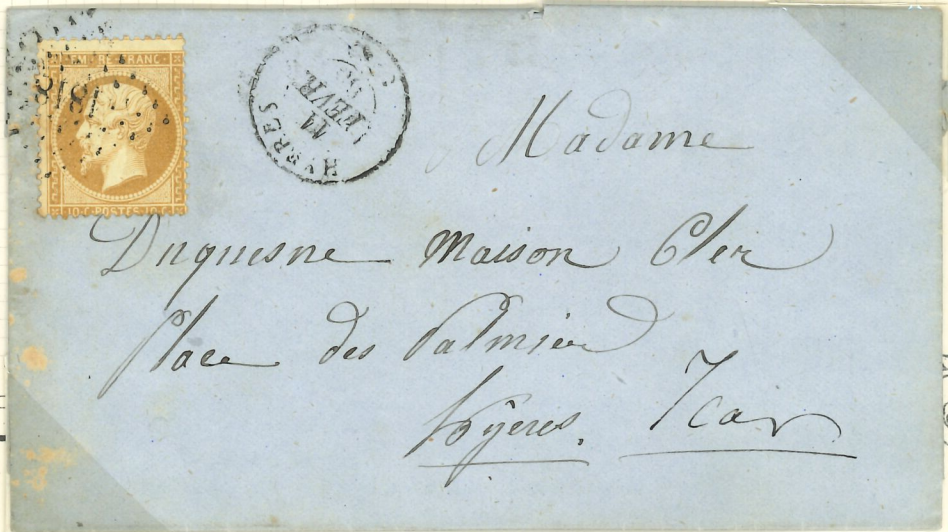 EMP. FRANC.
1818
10.C.POSTES.10.C.
HYERES
11
FEVR
Madame
Duquesne Maison Cler
Place des Palmiers
hyères. Var